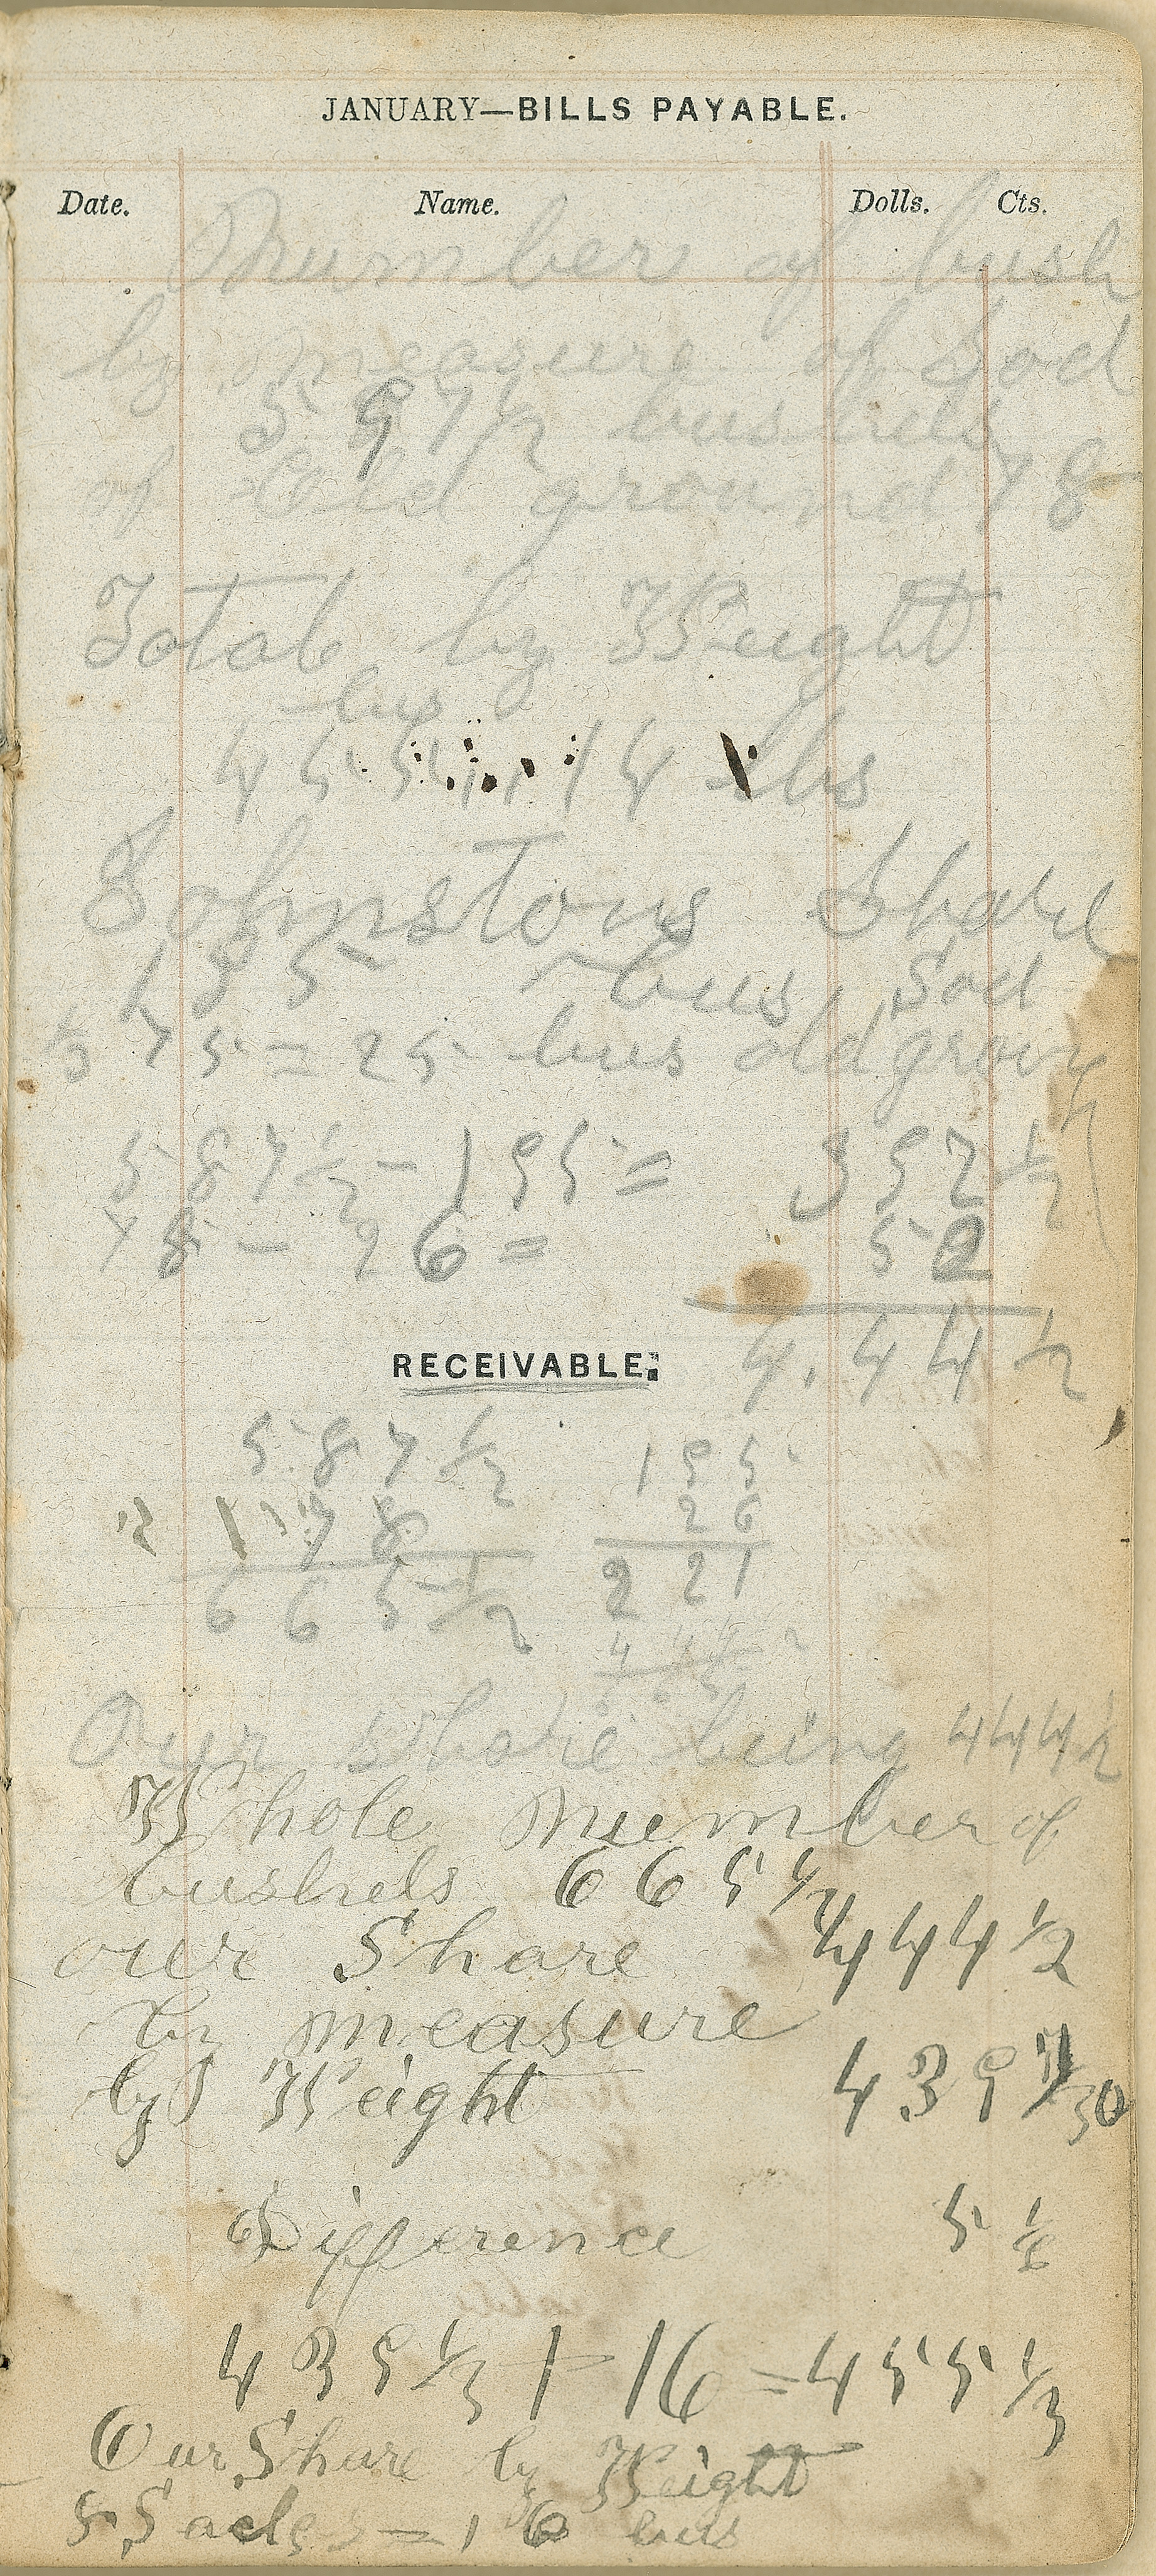 JANUARY—BILLS PAYABLE.
Date. Name. Dolls. Cts.
Number of bush
by measure of Sod
5 9 7 1/2 bushels
of Old ground 78
Total by Weight
bus
455 14 lbs
Johnstons Share
195 bus Sod
1/3 75 = 25 bus old groun
587 1/2 - 195 = 392 1/2
78 - 26 = 52
4,44 1/2
RECEIVABLE.
587 1/2 195
78 26
665 1/2 221
444
Our share being 444 1/2
Whole number of
bushels 665 1/2
our Share 444 1/2
by measure
by Weight 439 1/30
Difference 5 1/6
439 1/3 + 16 = 455 1/3
Our Share by Weight
8 Sacks = 16 bus